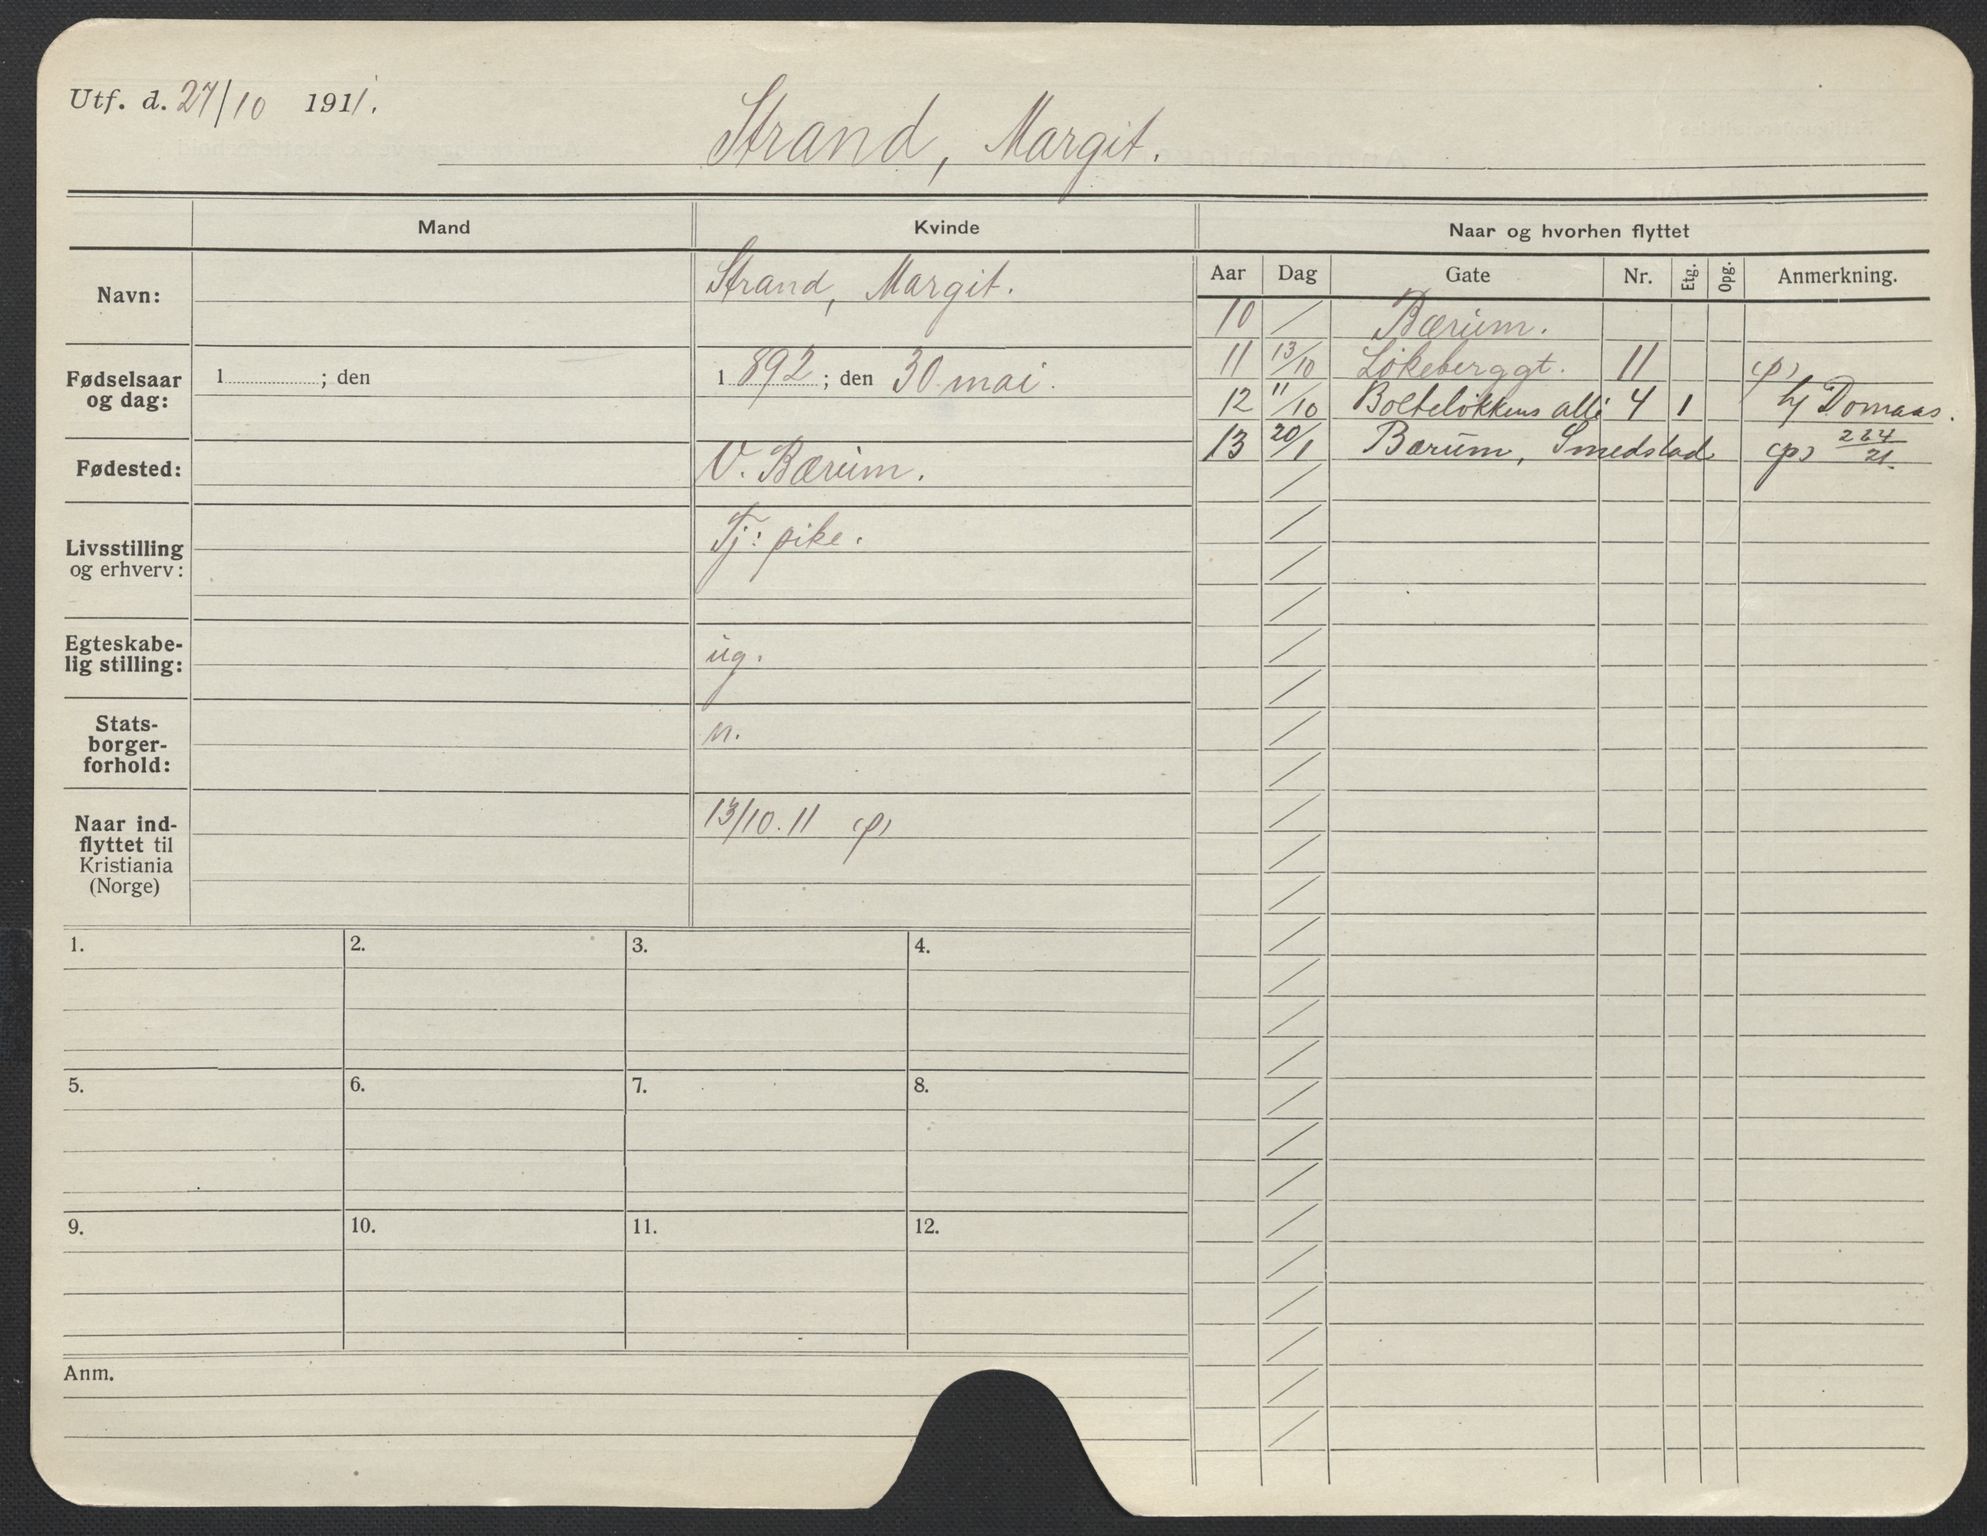 Utf. d. 27/10 1911.
Strand, Margit.
Mand
Kvinde
Naar og hvorhen flyttet
Navn:
Strand, Margit.
Fødselsaar
og dag:
1 ; den
1 892 ; den 30 mai.
Fødested:
V. Bærum.
Livsstilling
og erhverv:
Tj: pike.
Egteskabe-
lig stilling:
ug.
Stats-
borger-
forhold:
n.
Naar ind-
flyttet til
Kristiania
(Norge)
13/10. 11 (p)
Aar Dag Gate Nr. Etg. Opg. Anmerkning.
10 / Bærum.
11 13/10 Løkeberggt. 11 (p)
12 11/10 Bolteløkkens allé 4 1 hj Domaas.
13 20/1 Bærum, Smedstad (p) 264/21.
1. 2. 3. 4.
5. 6. 7. 8.
9. 10. 11. 12.
Anm.